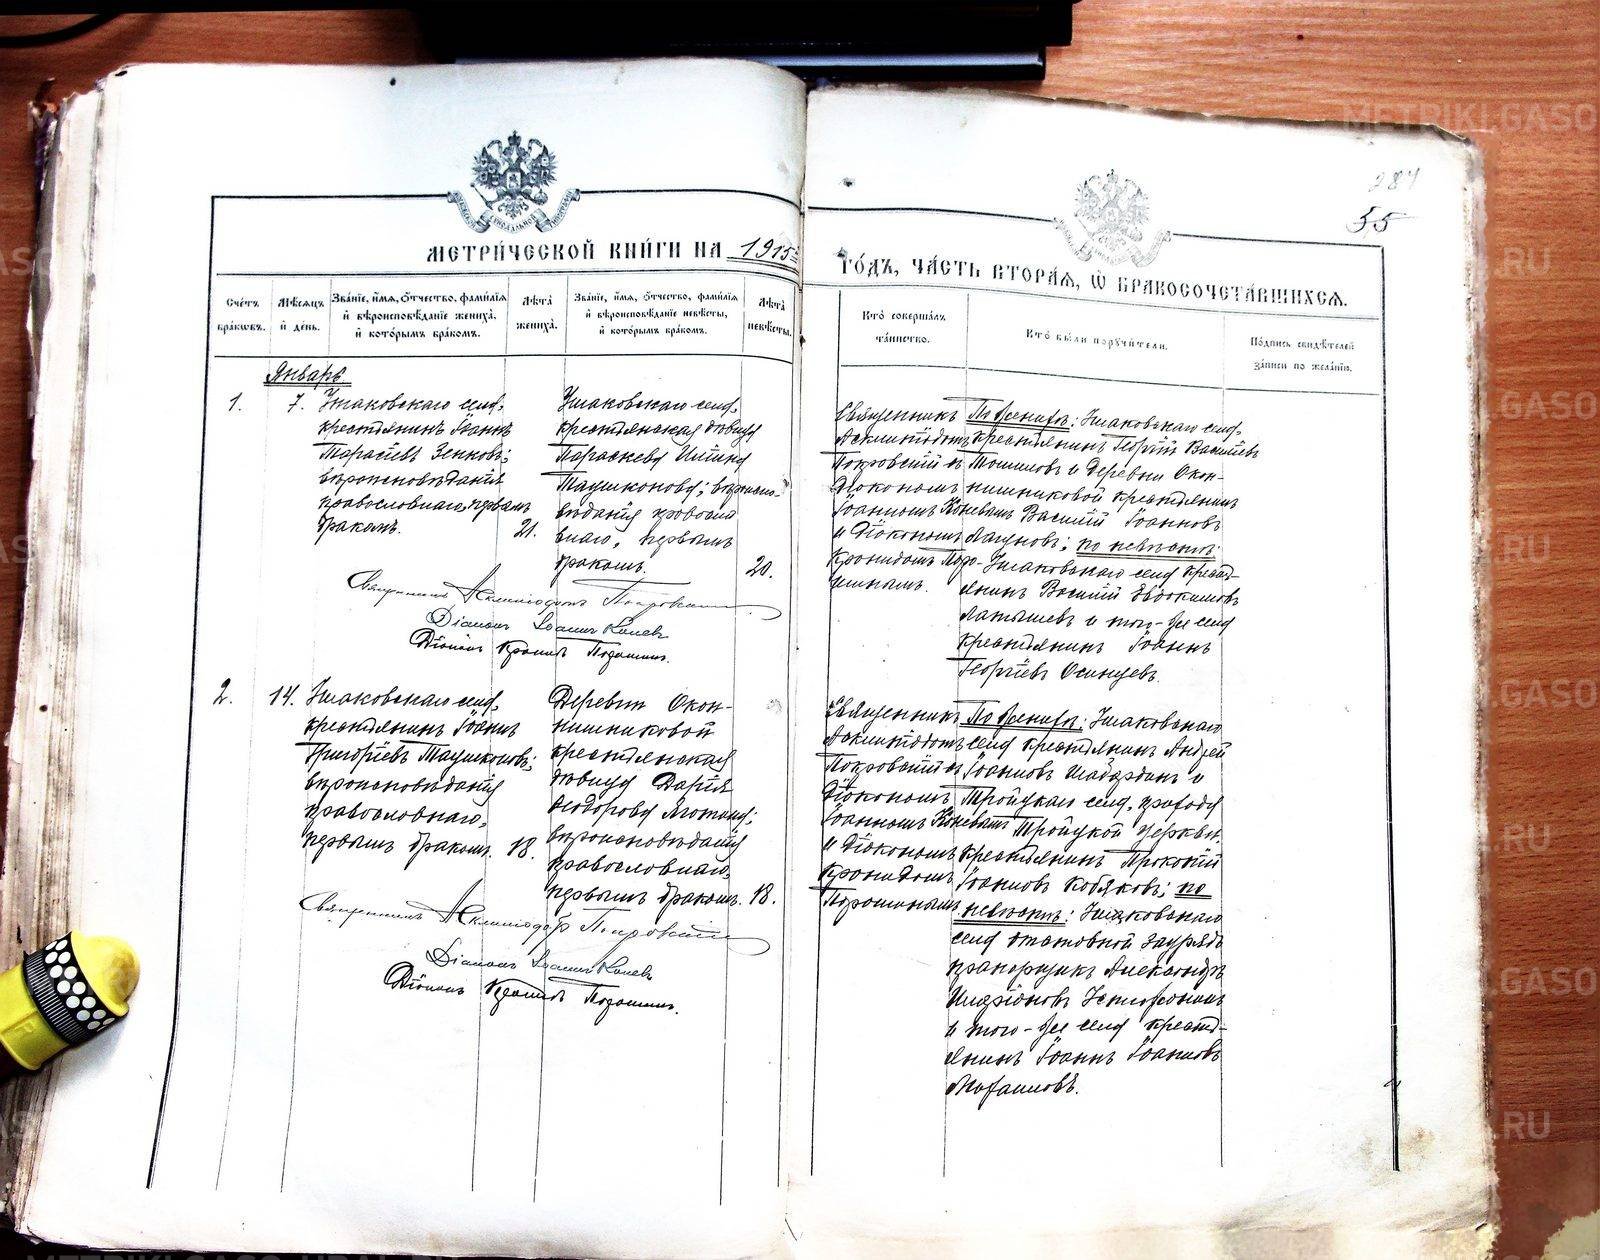 284
55
МЕТРИ́ЧЕСКОЙ КНИ́ГИ НА 1915й
ГО́ДЪ, ЧА́СТЬ ВТОРА́Я, Ѽ БРАКОСОЧЕТА́ВШИХСЯ.
Сче́тъ бра́кωвъ.
Мѣ́сяцъ и́ де́нь.
Зва́нїе, и́мя, ѻ҆́тчество, фами́лїя и́ вѣроисповѣ́данїе жениха̀, и́ кото́рымъ бра́комъ.
Лѣ́та жениха̀.
Зва́нїе, и́мя, ѻ҆́тчество, фами́лїя и́ вѣроисповѣ́данїе невѣ́сты, и́ кото́рымъ бра́комъ.
Лѣ́та невѣ́сты.
Кто̀ соверша́лъ та́инство.
Кто̀ бы́ли поручи́тели.
По́дпись свидѣ́телей за́писи по жела́нїю.
Январь.
1.
7.
Ушаковскаго села,
крестьянинъ Іоаннъ
Тарасіевъ Зенковъ;
вѣроисповѣданія
православнаго, первымъ
бракомъ.
21.
Ушаковскаго села,
крестьянская дѣвица
Параскева
Таушканова; вѣроиспо-
вѣданія правосла
внаго, первымъ
бракомъ.
20.
Священникъ
Асклипіодотъ
Покровскій съ
Діакономъ
Іоанномъ Коневымъ
и Діакономъ
Кронидомъ Поро-
шинымъ.
По женихѣ: Ушаковскаго села,
крестьянинъ Георгій Васильевъ
и деревни Окон-
нишниковой крестьянинъ
Василій Іоанновъ
по невѣстѣ:
Ушаковскаго села крест-
янинъ Василій Евдокимовъ
Латышевъ и того-же села
крестьянинъ Іоаннъ
Георгіевъ Осинцевъ.
Священникъ Асклипіодотъ Покровскій
Діаконъ Іоаннъ Коневъ
Діаконъ Кронидъ Порошинъ.
2.
14.
Ушаковскаго села,
крестьянинъ Іоаннъ
Григоріевъ Таушкановъ;
вѣроисповѣданія
православнаго,
первымъ бракомъ.
18.
Деревни Окон-
нишниковой
крестьянская
дѣвица Дарія
Ѳеодорова
вѣроисповѣданія
православнаго,
первымъ бракомъ.
18.
Священникъ
Асклипіодотъ
Покровскій съ
Діакономъ
Іоанномъ Коневымъ
и Діакономъ
Кронидомъ
Порошинымъ
По женихѣ: Ушаковскаго
села крестьянинъ Андрей
Іоанновъ Шабардинъ и
Троицкаго села, прихода
Троицкой церкви
крестьянинъ Прокопій
Іоанновъ Кобяковъ; по
невѣстѣ: Ушаковскаго
села отставной заурядъ
прапорщикъ Александръ
Иларіоновъ
и того-же села крест-
янинъ Іоаннъ Іоанновъ
Священникъ Асклипіодотъ Покровскій
Діаконъ Іоаннъ Коневъ
Діаконъ Кронидъ Порошинъ.
METRIKI.GASO
.RU